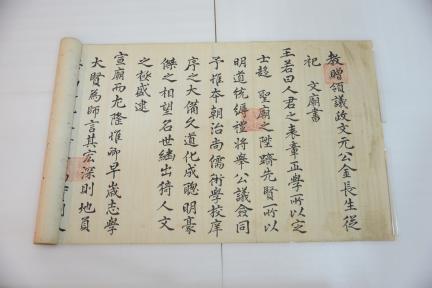 教贈領議政文元公金長生從
祀 文廟書
王若曰人君之表章正學所以定
士趍 聖廟之陞躋先賢所以
明道統縟禮將舉公議僉同
予推本朝治尚儒術學校庠
序之大備久道化成聰明豪
傑之相望名世繼出猗人文
之極盛逮
宣廟而尤隆惟卿早歲志學
大賢爲師言其宏深則地負